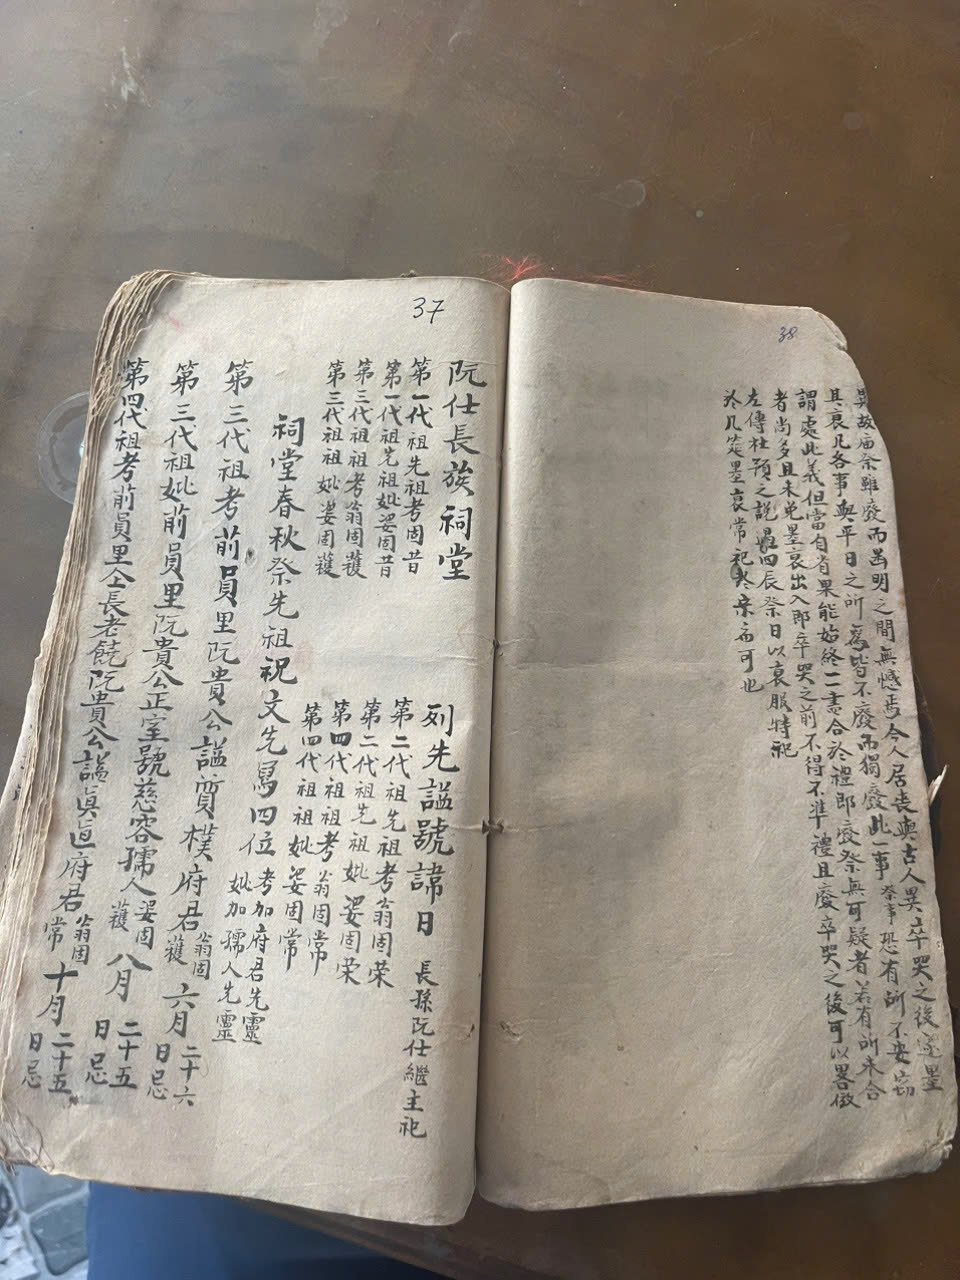 38
異故庙祭雖廢而幽明之間無憾焉今人居丧與古人異卒哭之後遂墨
其衰凢各事與平日之所為皆不廢而獨廢此一事祭事恐有所不安窃
謂處此義但當自省果能始終一盡合於禮即廢祭無可疑者若有所未合
者尚多且未免墨衰出入即卒哭之前不得不準禮且廢卒哭之後可以畧倣
左傳杜預之説遇四辰祭日以衰服特祀
於几筵墨衰常祀於宗庙可也
37
阮仕長族祠堂 列先謚號諱日 長孫阮仕繼主祀
第一代祖先祖考固昔 第二代祖先祖考翁固荣
第一代先祖妣婆固昔 第二代祖先祖妣婆固荣
第三代祖祖考翁固䕶 第四代祖祖考翁固常
第三代祖祖妣婆固䕶 第四代祖祖妣婆固常
祠堂春秋祭先祖祝文先寫四位 考加府君先靈 妣加孺人先靈
第三代祖考前員里阮貴公謚質樸府君 翁固䕶 六月 二十六日忌
第三代祖妣前員里阮貴公正室號慈容孺人 婆固䕶 八月 二十五日忌
第四代祖考前員里仝長老饒阮貴公謚眞直府君 翁固常 十月 二十五日忌